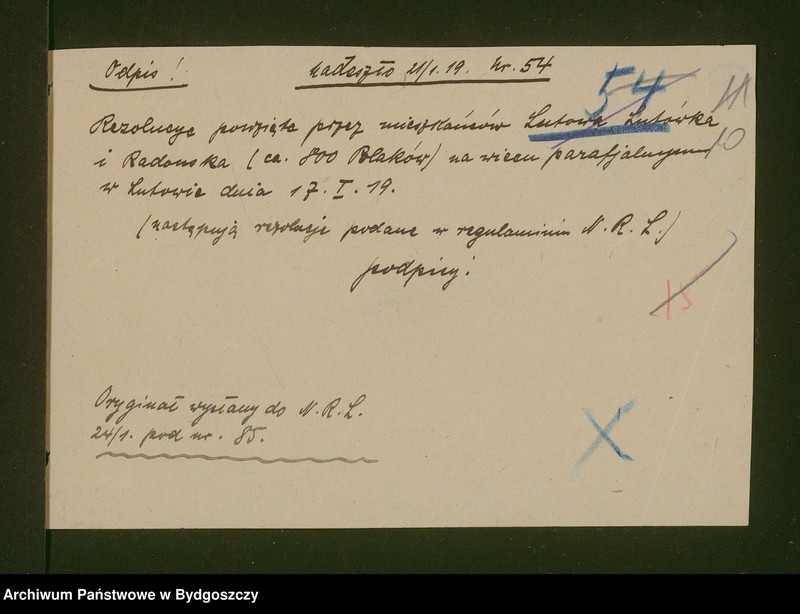 Odpis! nadeszło 21/1. 19. Nr. 54
54
11
10
Rezolucje powzięte przez mieszkańców Lutowa Lutówka
i Radonska (ca. 800 Polaków) na wiecu parafjalnym
w Lutowie dnia 17. I. 19.
(następują rezolucje podane w regulaminie N. R. L.)
podpisy:
15
Oryginał wysłany do N. R. L.
24/1. pod nr. 85.
X
Archiwum Państwowe w Bydgoszczy